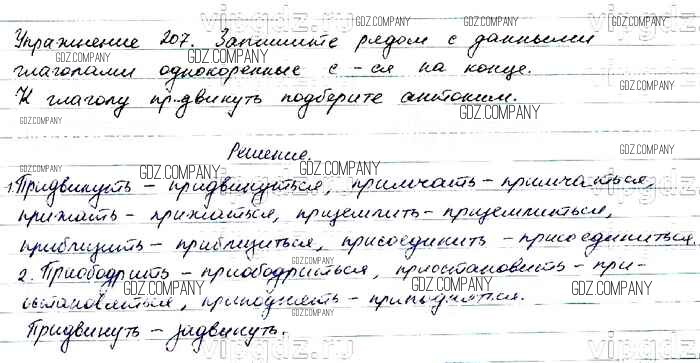 Упражнение 207. Запишите рядом с данными
глаголами однокоренные с -ся на конце.
К глаголу пр..двинуть подберите антоним.
Решение.
1. Придвинуть – придвинуться, примчать – примчаться,
прижать – прижаться, приземлить – приземлиться,
приблизить – приблизиться, присоединить – присоединиться.
2. Приободрить – приободриться, приостановить – при-
остановиться, приподнять – приподняться.
Придвинуть – задвинуть.